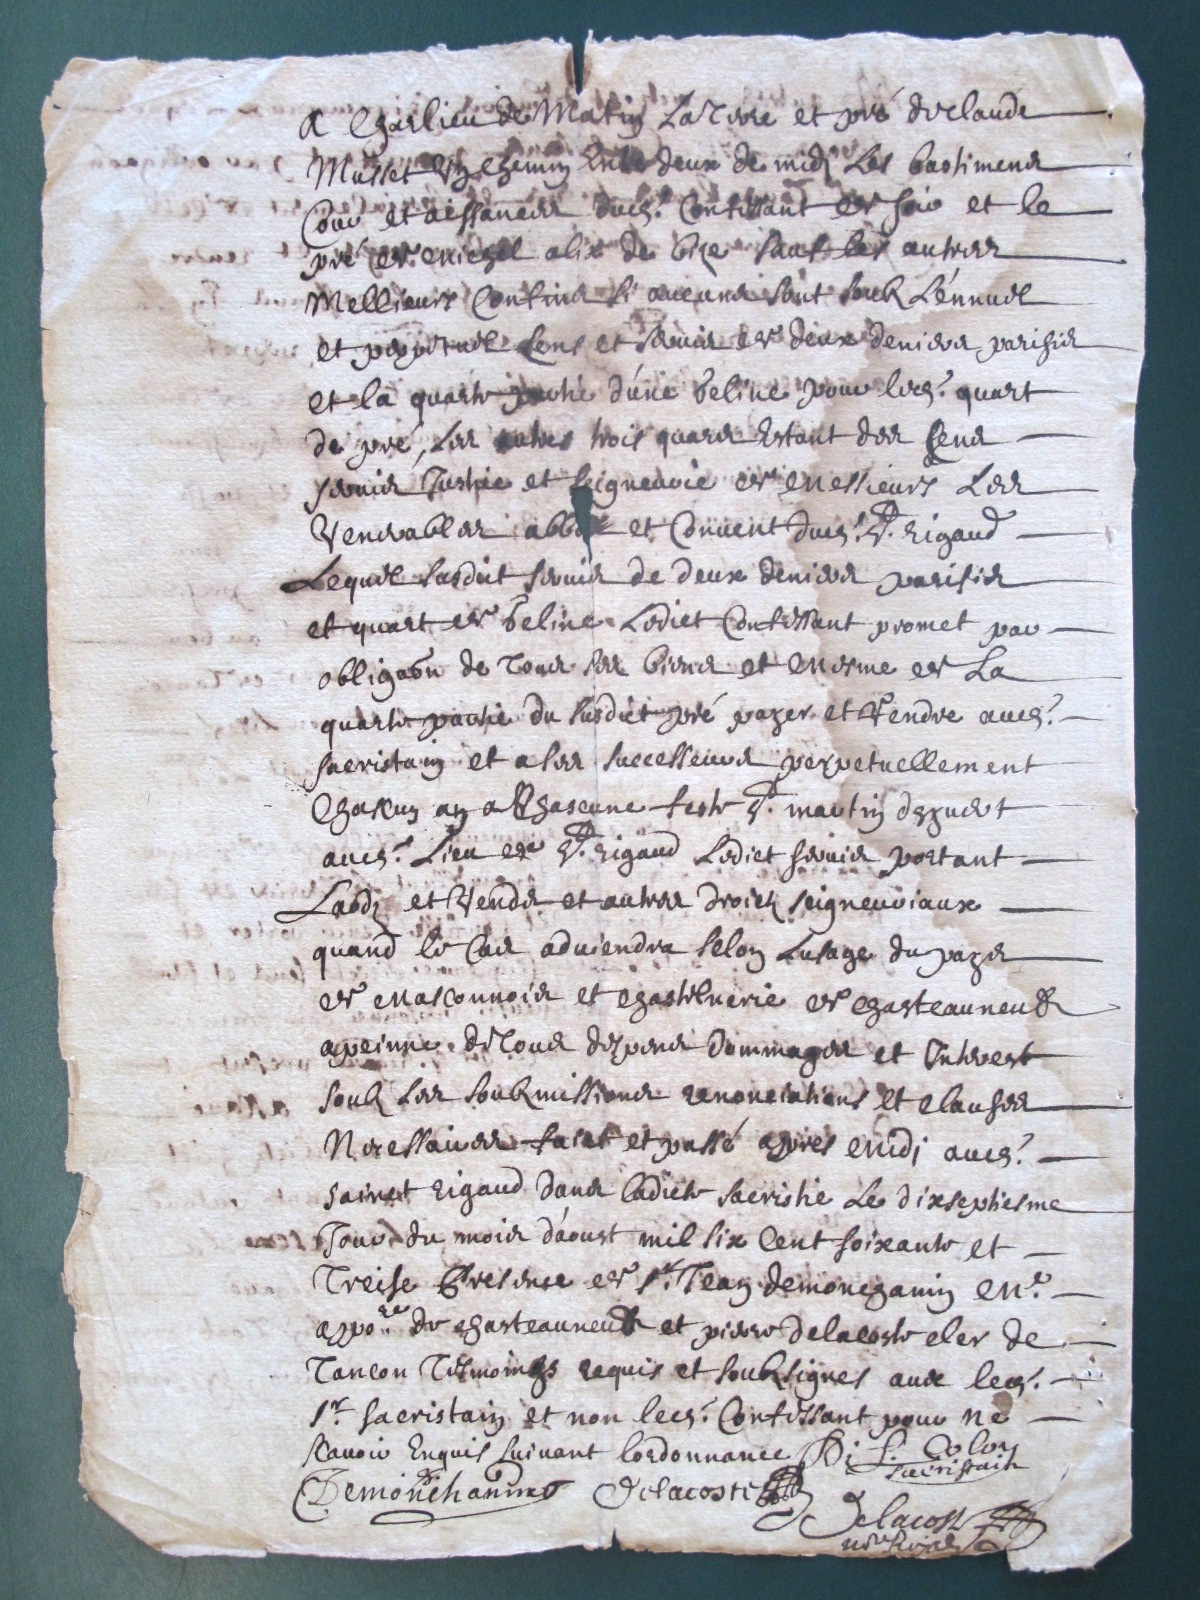 A Charlieu de Matin La Terre et pré de claude
Musset Un chemin Entre deux de midy Les bastimens
Cour et aissances dud.t Confessant de soir et le
pré de Michel alix de bize sauf les autres
Mellieurs Confins si aucuns sont soubz Lénnuel
et perpetuel Cens et servis de deux deniers parisis
et la quarte partie dúne geline pour led.t quart
de pré, Les autres trois quars Estant des Cens
servis Justice et seigneurie de Messieurs Les
Venerables abbé et Couvent dud.t St. Rigaud
Lequel susdict servis de deux deniers parisis
et quart de geline Ledict Confessant promet par
obliga~on de Tous ses biens et Mesme de La
quarte partie du susdict pré payer et Rendre aud.t
sacristain et a ses successeurs perpetuellement
Chascun an a Chascune feste St. martin d'hyvert
aud.t Lieu de St. Rigaud Ledict servis portant
Laods et Vends et autres droicts seigneuriaux
quand le Cas adviendra selon Lusage du pays
de Masconnois et chastelnerie de chasteauneuf
apeinne de Tous despens dommages et Interest
soubz Les soubzmissions renonciations et clauses
Necessaires faict et passé apres Midi aud.t
sainct Rigaud dans ladicte sacristie Le dixseptiesme
Jour du mois dáoust mil six Cent soixante et
Treise Presence de Sr. Jean demonchanin Me.
appo.re de chasteauneuf et pierre delacoste cler de
Tancon Tesmoings requis et soubzsignes avec led.t
Sr. sacristain et non led.t Confessant pour ne
scavoir Enquis suivant lordonnance
sacristain
Demonchanin Delacoste
Delacoste
no.re Royal